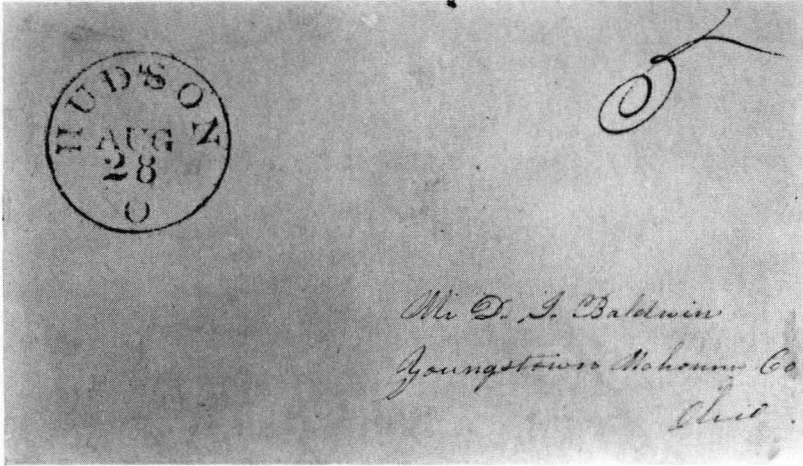 HUDSON
AUG
28
O
5
Mr D. I. Baldwin
Youngstown Mahoning Co
Ohio.